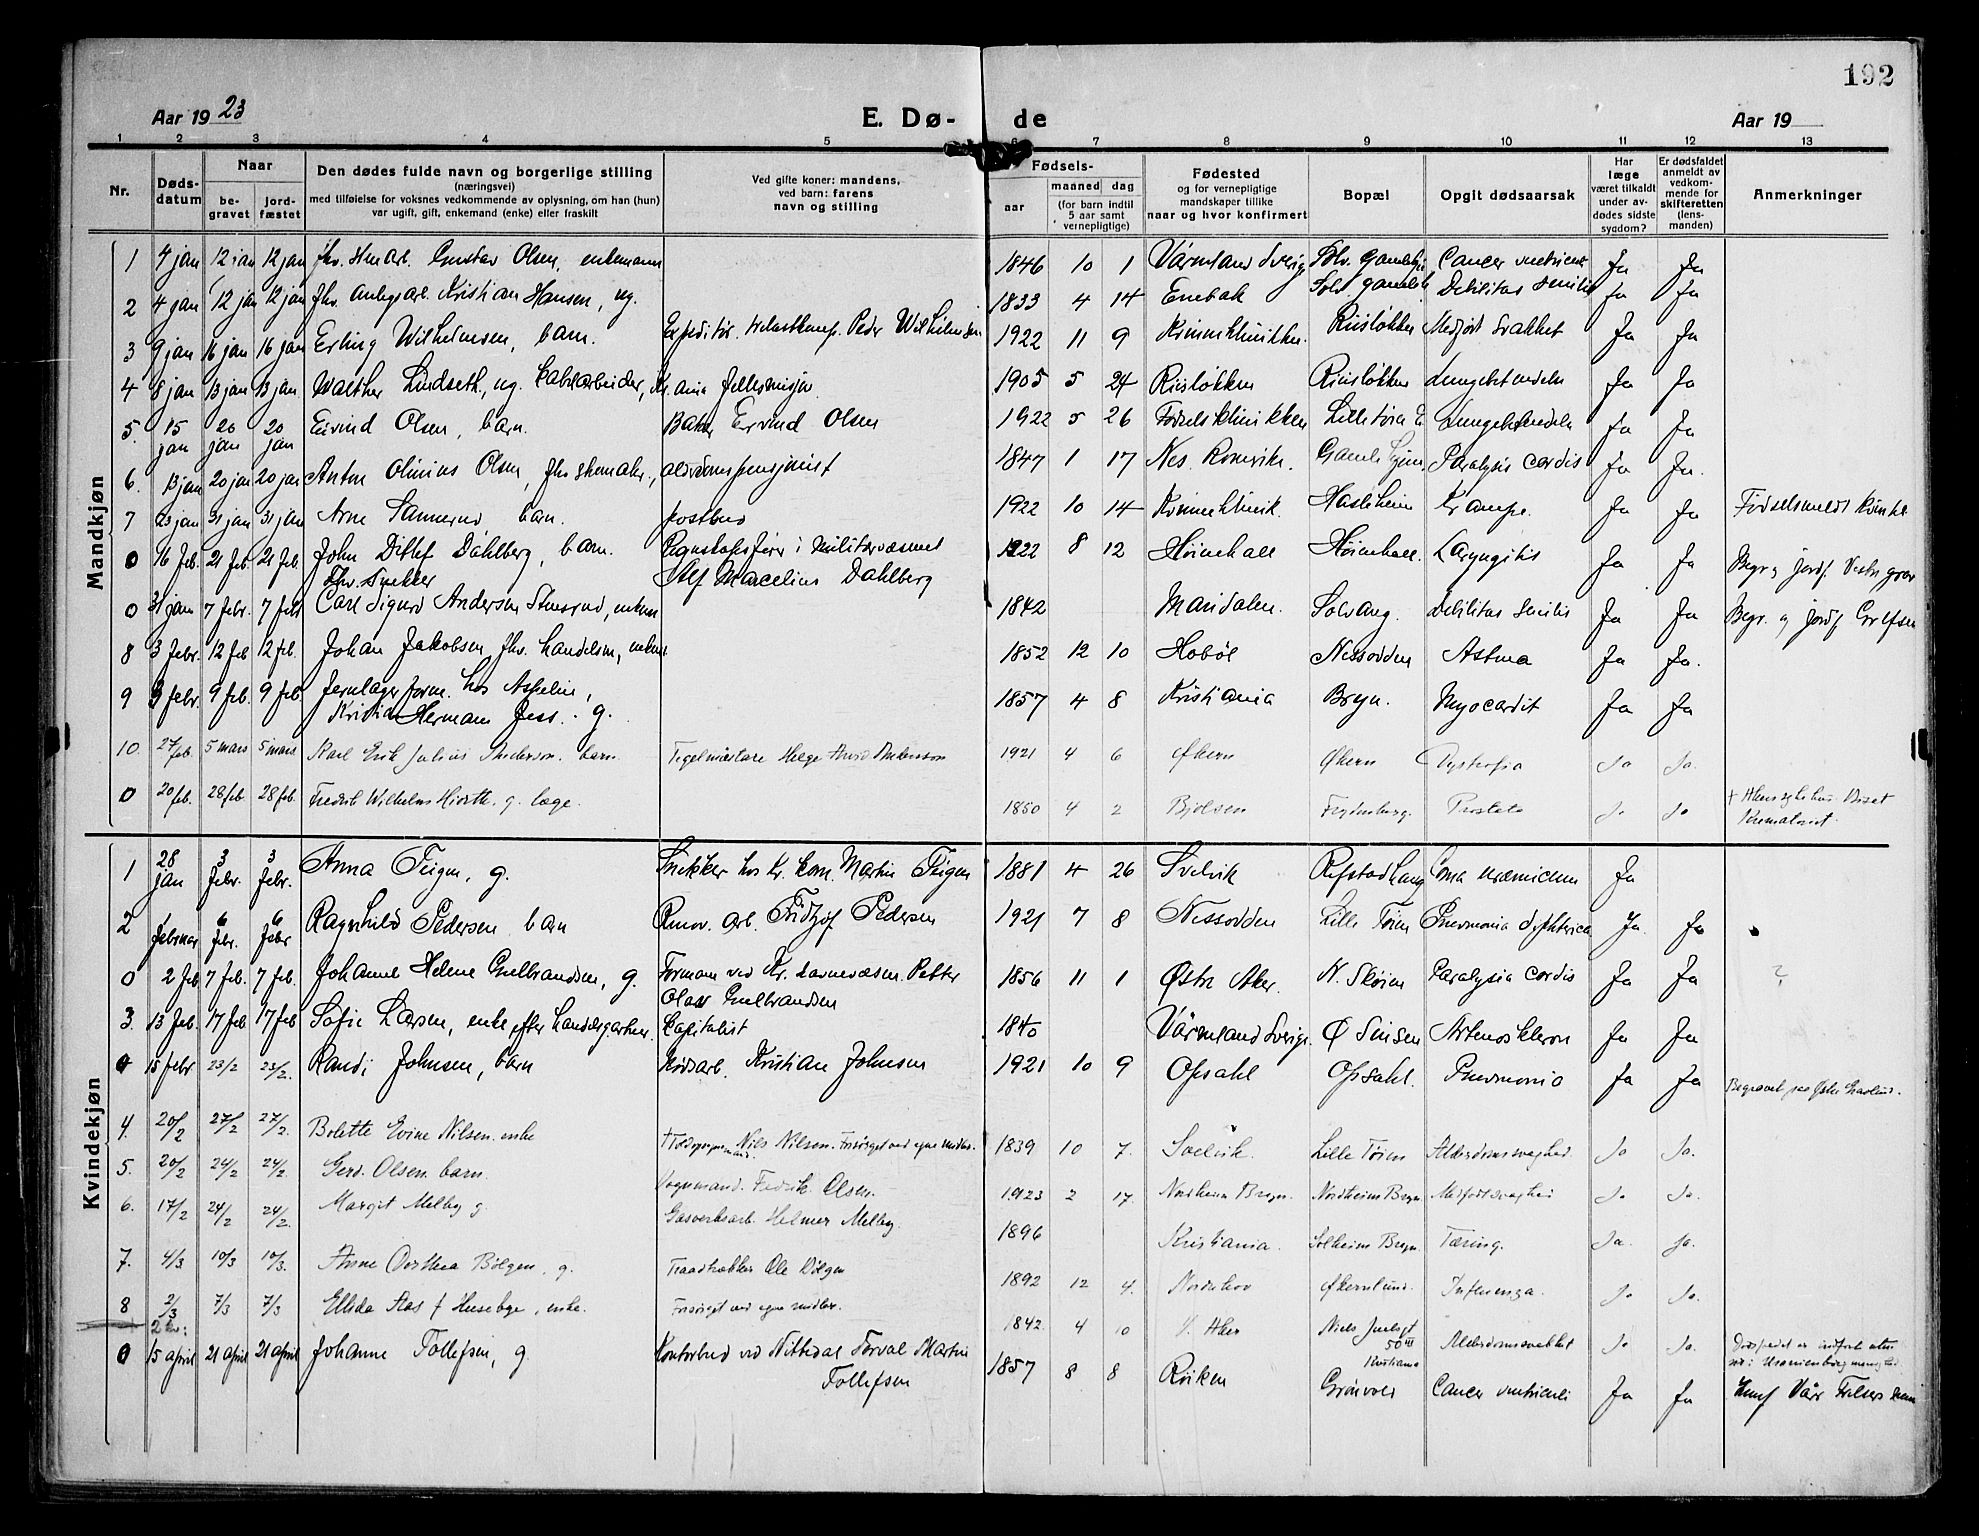 192
Aar 1923
E. Dø- de
Aar 19
1 2 3 4 5 6 7 8 9 10 11 12 13
Nr.
Døds-
datum
Naar
be-
gravet
jord-
fæstet
Den dødes fulde navn og borgerlige stilling
(næringsvei)
med tilføielse for voksnes vedkommende av oplysning, om han (hun)
var ugift, gift, enkemand (enke) eller fraskilt
Ved gifte koner: mandens,
ved barn: farens
navn og stilling
Fødsels-
aar
maaned dag
(for barn indtil
5 aar samt
vernepligtige)
Fødested
og for vernepligtige
mandskaper tillike
naar og hvor konfirmert
Bopæl
Opgit dødsaarsak
Har
læge
været tilkaldt
under av-
dødes sidste
sygdom?
Er dødsfaldet
anmeldt av
vedkom-
mende for
skifteretten
(lens-
manden)
Anmerkninger
Mandkjøn
1 4 jan 12 jan 12 jan fhv. Gustav Olsen, enkemann 1846 10 1 Värmland Sverig Solv. Cancer ventricul Ja Ja
2 4 jan 12 jan 12 jan fhv. anlegsarb. Kristian Hansen, ug. 1833 4 14 Enebak Solv. Debilitas senilis Ja Ja
3 9 jan 16 jan 16 jan Erling Wilhelmsen, barn. Expeditør. Peder Wilhelmsen 1922 11 9 Kvinneklinikken Risløkken Medfødt svakhet Ja Ja
4 8 jan 13 jan 13 jan Walther Lindseth, ug. Kabelarbeider, Kr.ania fellesmisjon 1905 5 24 Risløkken Risløkken Lungebetendelse Ja Ja
5. 15 jan 20 jan 20 jan Eivind Olsen, barn. Baker Eivind Olsen 1922 5 26 Fødselsklinikken Lille Tøien Lungebetendelse Ja Ja
6. 13 jan 20 jan 20 jan Anton Olinius Olsen, fhv skomaker, alderdomspensjonist 1847 1 17 Nes. Romerike. Gamle hjem Paralysis cordis Ja Ja.
7 23 jan 31 jan 31 jan Arne Sannerud barn. postbud 1922 10 14 Kvinneklinik. Hasleheim Krampe. Ja Ja Fødselsmeldt
0 16 feb. 21 feb. 21 feb. John Ditlef Dahlberg, barn. Regnskapsfører i militærvæsenet
Alf Marcelius Dahlberg 1922 8 12 Høienhall Høienhall. Laryngitis Ja Ja Begr. og jordf. Vestre grav
0 31 jan 7 febr. 7 feb Fhv. snekker
Carl Sigurd Andersen Stensrud, enkem 1842 Maridalen. Solvang. Debilitas senilis Ja Ja Begr. og jordf
8 3 febr. 12 feb 12 feb. Johan Jakobsen fhv. handelsm, enkem 1852 12 10 Hobøl Nessodden Astma Ja Ja.
9 3 febr. 9 feb. 9 feb. Jernlagerform. hos Askelin,
Kristian Hermann Jess. g. 1857 4 8 Kristiania Bryn. Myocardit Ja Ja
10. 27 feb. 5 mars 5 mars Karl Erik Julius Anderson. barn Tegelmästare Helge Arvid Anderson 1921 4 6 Økern Økern Dystrofia Ja Ja.
0 20 feb. 28 feb 28 feb. Fredrik Wilhelm Hiorth. g. læge. 1850 4 2 Bjølsen Frydenberg. Prostata Ja Ja + Aker sykehus. Biset
Krematoriet.
Kvindekjøn
1 28 jan 3 febr. 3 febr. Anna Teigen, g. Snekker hos Kr. kom. Martin Teigen 1881 4 26 Svelvik Refstadhaug Coma uræmicum Ja
2 februar 6 febr. 6 febr Ragnhild Pedersen barn Renov. arb. Fridtjof Pedersen 1921 7 8 Nessodden Lille Tøien Pneumonia diphterica Ja. Ja
0 2 feb 7 feb. 7 feb. Johanne Helene Gulbrandsen, g. Formann ved Kr. havnevæsen. Petter
Olav Gulbrandsen 1856 11 1 Østre Aker. N. Skøien Paralysia cordis Ja Ja ?
3. 13 feb. 17 feb 17 feb Sofie Larsen, enke efter handelsgartner Kapitalist 1840 Värmland Sverige. Ø Sinsen Arterosklerose Ja Ja
0 15 febr 23/2 23/2. Randi Johnsen, barn Kristian Johnsen 1921 10 9 Opsahl Opsahl. Pneumonia Ja Ja Begravet paa Østre Gravlund.
4. 20/2 27/2 27/2. Bolette Evine Nilsen. enke + Nils Nilsen. Forsørget ved egne midler. 1839 10 7. Svelvik. Lille Tøien Alderdomssvaghed. Ja Ja.
5. 20/2 24/2 24/2. Gerd. Olsen. barn. Vognmand. Fredrik Olsen. 1923 2 17. Nordheim Bryn. Nordheim Bryn Medfødt svaghed Ja Ja.
6. 17/2 24/2 24/2. Margit Melby g. Gasverksarb. Helmer Melby. 1896 Kristiania. Solheim Bryn. Tæring. Ja. Ja.
7. 4/3 10/3 10/3. Anne Dorthea Bölgen, g. Traadtrækker Ole Bölgen 1892 12 4. Norderhov Økernlund. Influenza. Ja Ja.
8 2/3 7/3 7/3 Ellida Aas f Husebye, enke. Forsørget ved egne midler. 1842. 4 10 V. Aker Niels Juelsgt
50 III
Kristiania Alderdomssvakhet Ja Ja. Dødsfaldet er indført uten
nr. i Uranienborg menighed.
0 15 april 21 april 21 april Johanne Tollefsen, g. Kontorbud ved Nittedal Martin
Tollefsen 1857 8 8 Røiken Grønvold Cancer ventriculi Ja Ja Vår Frelsers